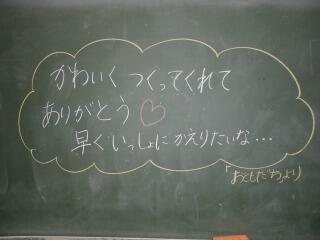 かわいく つくってくれて
ありがとう♡
早くいっしょにかえりたいな…
「おともだち」より